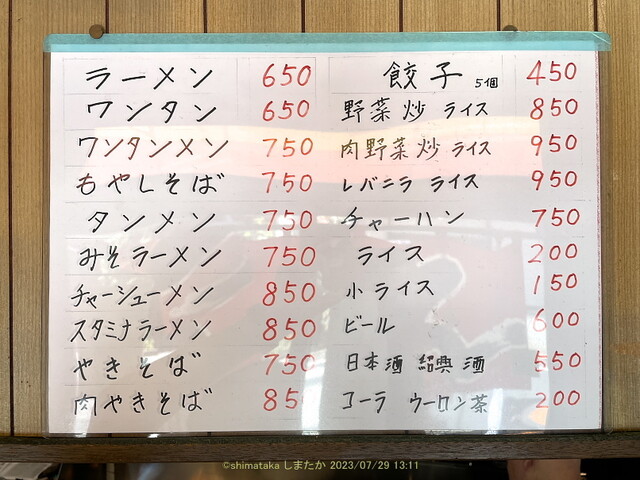 ラーメン 650
ワンタン 650
ワンタンメン 750
もやしそば 750
タンメン 750
みそラーメン 750
チャーシューメン 850
スタミナラーメン 850
やきそば 750
肉やきそば 85
餃子 5個 450
野菜炒 ライス 850
肉野菜炒 ライス 950
レバニラ ライス 950
チャーハン 750
ライス 200
小ライス 150
ビール 600
日本酒 紹興酒 550
コーラ ウーロン茶 200
©shimataka しまたか 2023/07/29 13:11